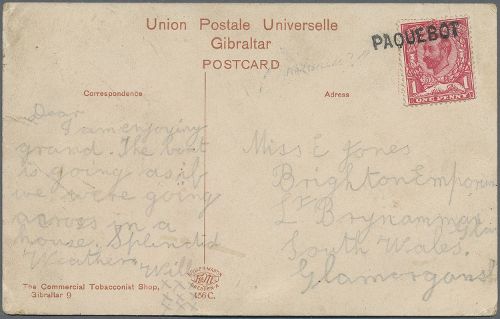 Union Postale Universelle
Gibraltar
POSTCARD
PAQUEBOT
1 1
ONE PENNY
Correspondence
Adress
Dear
I am enjoying
grand. The boat
is going as if
we were going
across in a
house. Splendid
Weather. Will
xxx
xxx
Miss E Jones
Brighton Emporium
Lr Brynamman
South Wales
Glamorgans
The Commercial Tobacconist Shop,
Gibraltar 9
456 C.